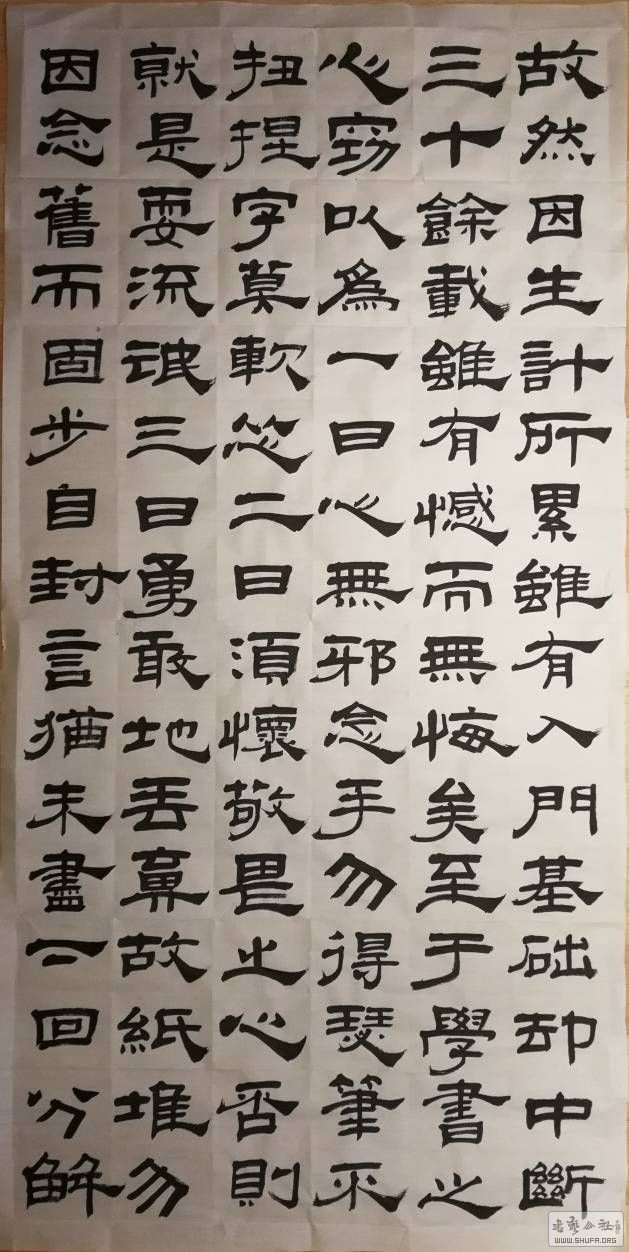 故然因生計所累雖有入門基础却中斷
三十餘載雖有憾而無悔矣至于學書之
心窃以爲一曰心無邪念手勿得瑟筆不
扭捏字莫軟怂二曰須懷敬畏之心否則
就是耍流氓三曰勇敢地丟棄故紙堆勿
因念舊而固步自封言猶未盡下回分解
書藝公社
WWW.SHUFA.ORG